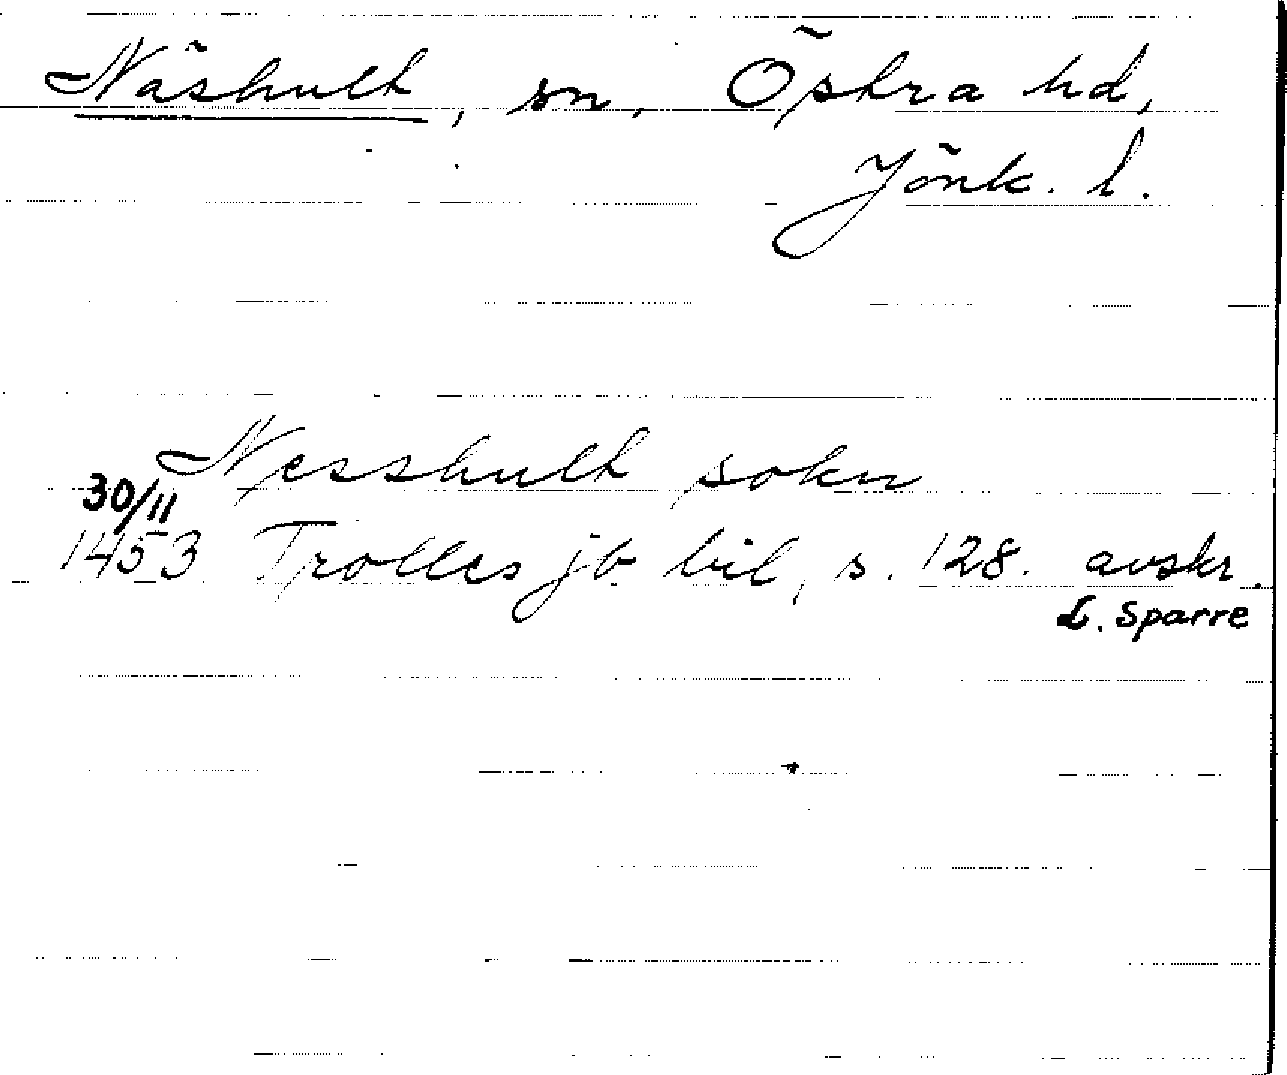 Näshult, sn, Östra hd,
Jönk. l.
Nesshult sokn
30/11
1453 Trolles jb bil, s. 128. avskr.
L. Sparre